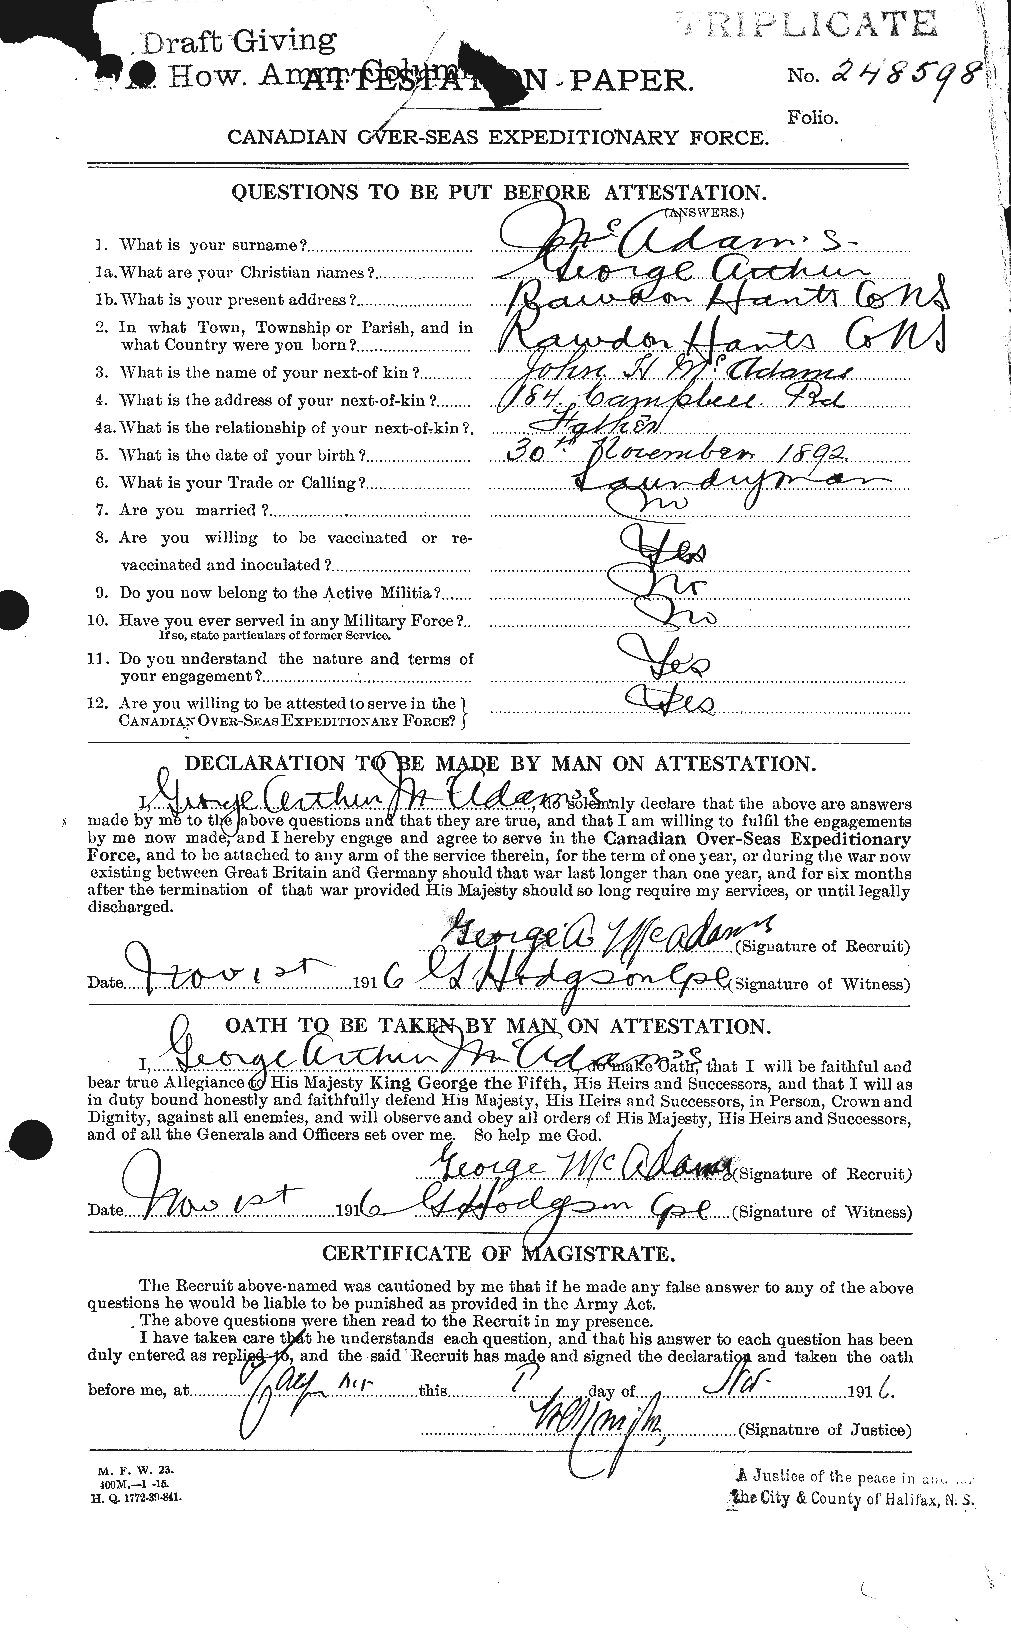 TRIPLICATE
Draft Giving
How. Amm. Column
ATTESTATION PAPER.
No. 248598
Folio.
CANADIAN OVER-SEAS EXPEDITIONARY FORCE.
QUESTIONS TO BE PUT BEFORE ATTESTATION.
(ANSWERS.)
1. What is your surname? McAdams
1a. What are your Christian names? George Arthur
1b. What is your present address? Rawdon Hants Co NS
2. In what Town, Township or Parish, and in
what Country were you born? Rawdon Hants Co NS
3. What is the name of your next-of kin? John H McAdams
4. What is the address of your next-of-kin? 184 Campbell Rd
4a. What is the relationship of your next-of-kin? Father
5. What is the date of your birth? 30th November 1892
6. What is your Trade or Calling? Laundryman
7. Are you married? No
8. Are you willing to be vaccinated or re-
vaccinated and inoculated? Yes
9. Do you now belong to the Active Militia? No
10. Have you ever served in any Military Force? No
If so, state particulars of former Service.
11. Do you understand the nature and terms of
your engagement? Yes
12. Are you willing to be attested to serve in the
CANADIAN OVER-SEAS EXPEDITIONARY FORCE? Yes
DECLARATION TO BE MADE BY MAN ON ATTESTATION.
I, George Arthur McAdams, do solemnly declare that the above are answers
made by me to the above questions and that they are true, and that I am willing to fulfil the engagements
by me now made, and I hereby engage and agree to serve in the Canadian Over-Seas Expeditionary
Force, and to be attached to any arm of the service therein, for the term of one year, or during the war now
existing between Great Britain and Germany should that war last longer than one year, and for six months
after the termination of that war provided His Majesty should so long require my services, or until legally
discharged.
George A McAdams (Signature of Recruit)
Date Nov 1st 1916 G Hodgson Cpl (Signature of Witness)
OATH TO BE TAKEN BY MAN ON ATTESTATION.
I, George Arthur McAdams, do make Oath, that I will be faithful and
bear true Allegiance to His Majesty King George the Fifth, His Heirs and Successors, and that I will as
in duty bound honestly and faithfully defend His Majesty, His Heirs and Successors, in Person, Crown and
Dignity, against all enemies, and will observe and obey all orders of His Majesty, His Heirs and Successors,
and of all the Generals and Officers set over me. So help me God.
George McAdams (Signature of Recruit)
Date Nov 1st 1916 G Hodgson Cpl (Signature of Witness)
CERTIFICATE OF MAGISTRATE.
The Recruit above-named was cautioned by me that if he made any false answer to any of the above
questions he would be liable to be punished as provided in the Army Act.
The above questions were then read to the Recruit in my presence.
I have taken care that he understands each question, and that his answer to each question has been
duly entered as replied to, and the said Recruit has made and signed the declaration and taken the oath
before me, at this day of Nov 1916.
(Signature of Justice)
M. F. W. 23.
400M.—1-15.
H. Q. 1772-39-841.
A Justice of the peace in and
the City & County of Halifax, N. S.